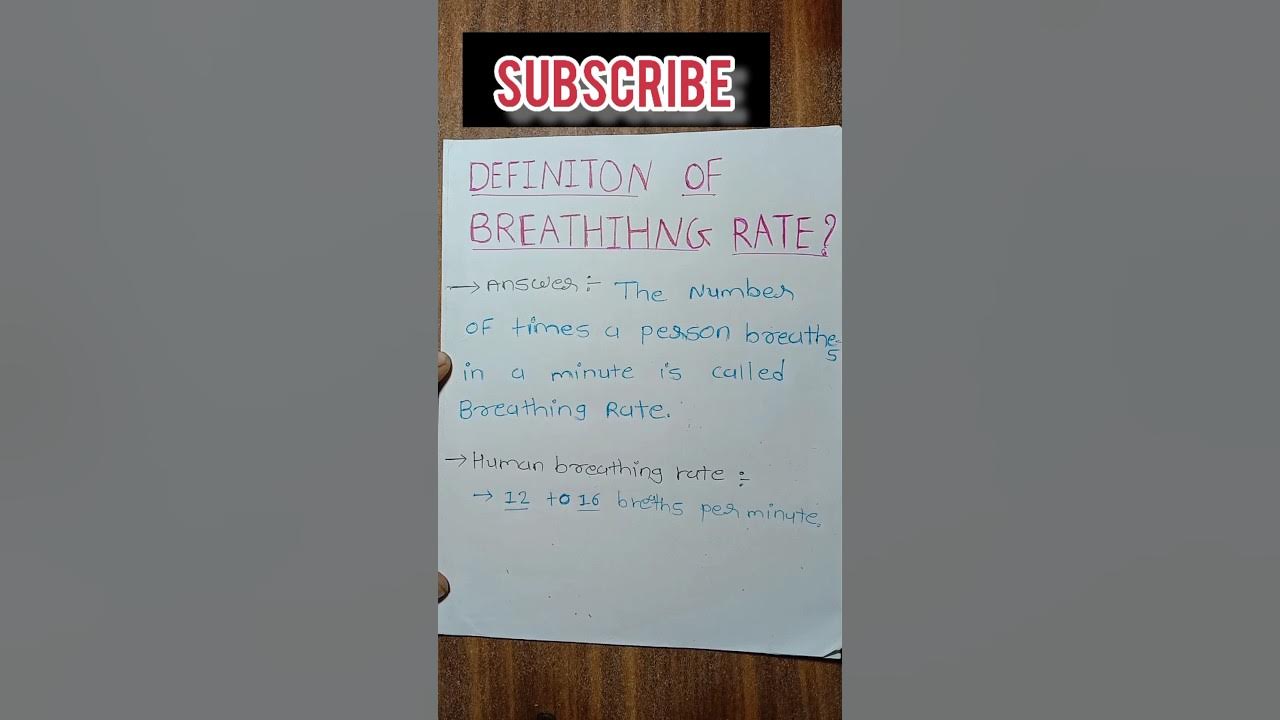 SUBSCRIBE
DEFINITON OF
BREATHIHNG RATE?
→ Answer :- The Number
OF times a person breathes
in a minute is called
Breathing Rate.
→ Human breathing rate :-
→ 12 to 16 breths per minute.